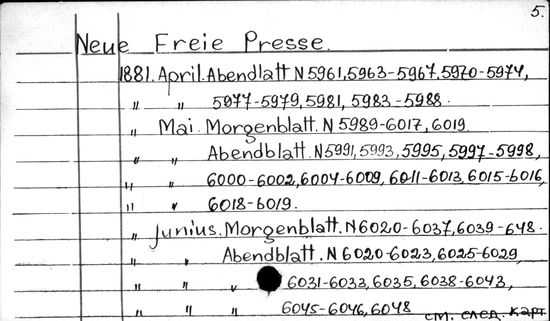 5.
Neue Freie Presse.
1881. April. Abendlatt N 5961,5963-5967,5970-5974,
" " 5977-5979,5981, 5983-5988.
" Mai. Morgenblatt. N 5989-6017,6019.
" " Abendblatt. N5991,5993,5995,5997-5998,
" " 6000-6002,6004-6009, 6011-6013,6015-6016,
" " 6018-6019.
" Junius. Morgenblatt. N6020-6037,6039-648.
" " Abendblatt. N 6020-6023,6025-6029,
" " " 6031-6033,6035,6038-6043,
" " " 6045-6046,6048
см. след. карт